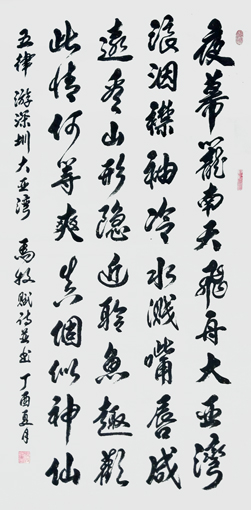 夜幕籠南天飛舟大亚灣
浪洇襟袖冷水濺嘴唇咸
遠看山形隐近聆魚趣歡
此情何等爽真個似神仙
五律 游深圳大亚灣 馬牧賦詩并书 丁酉夏月